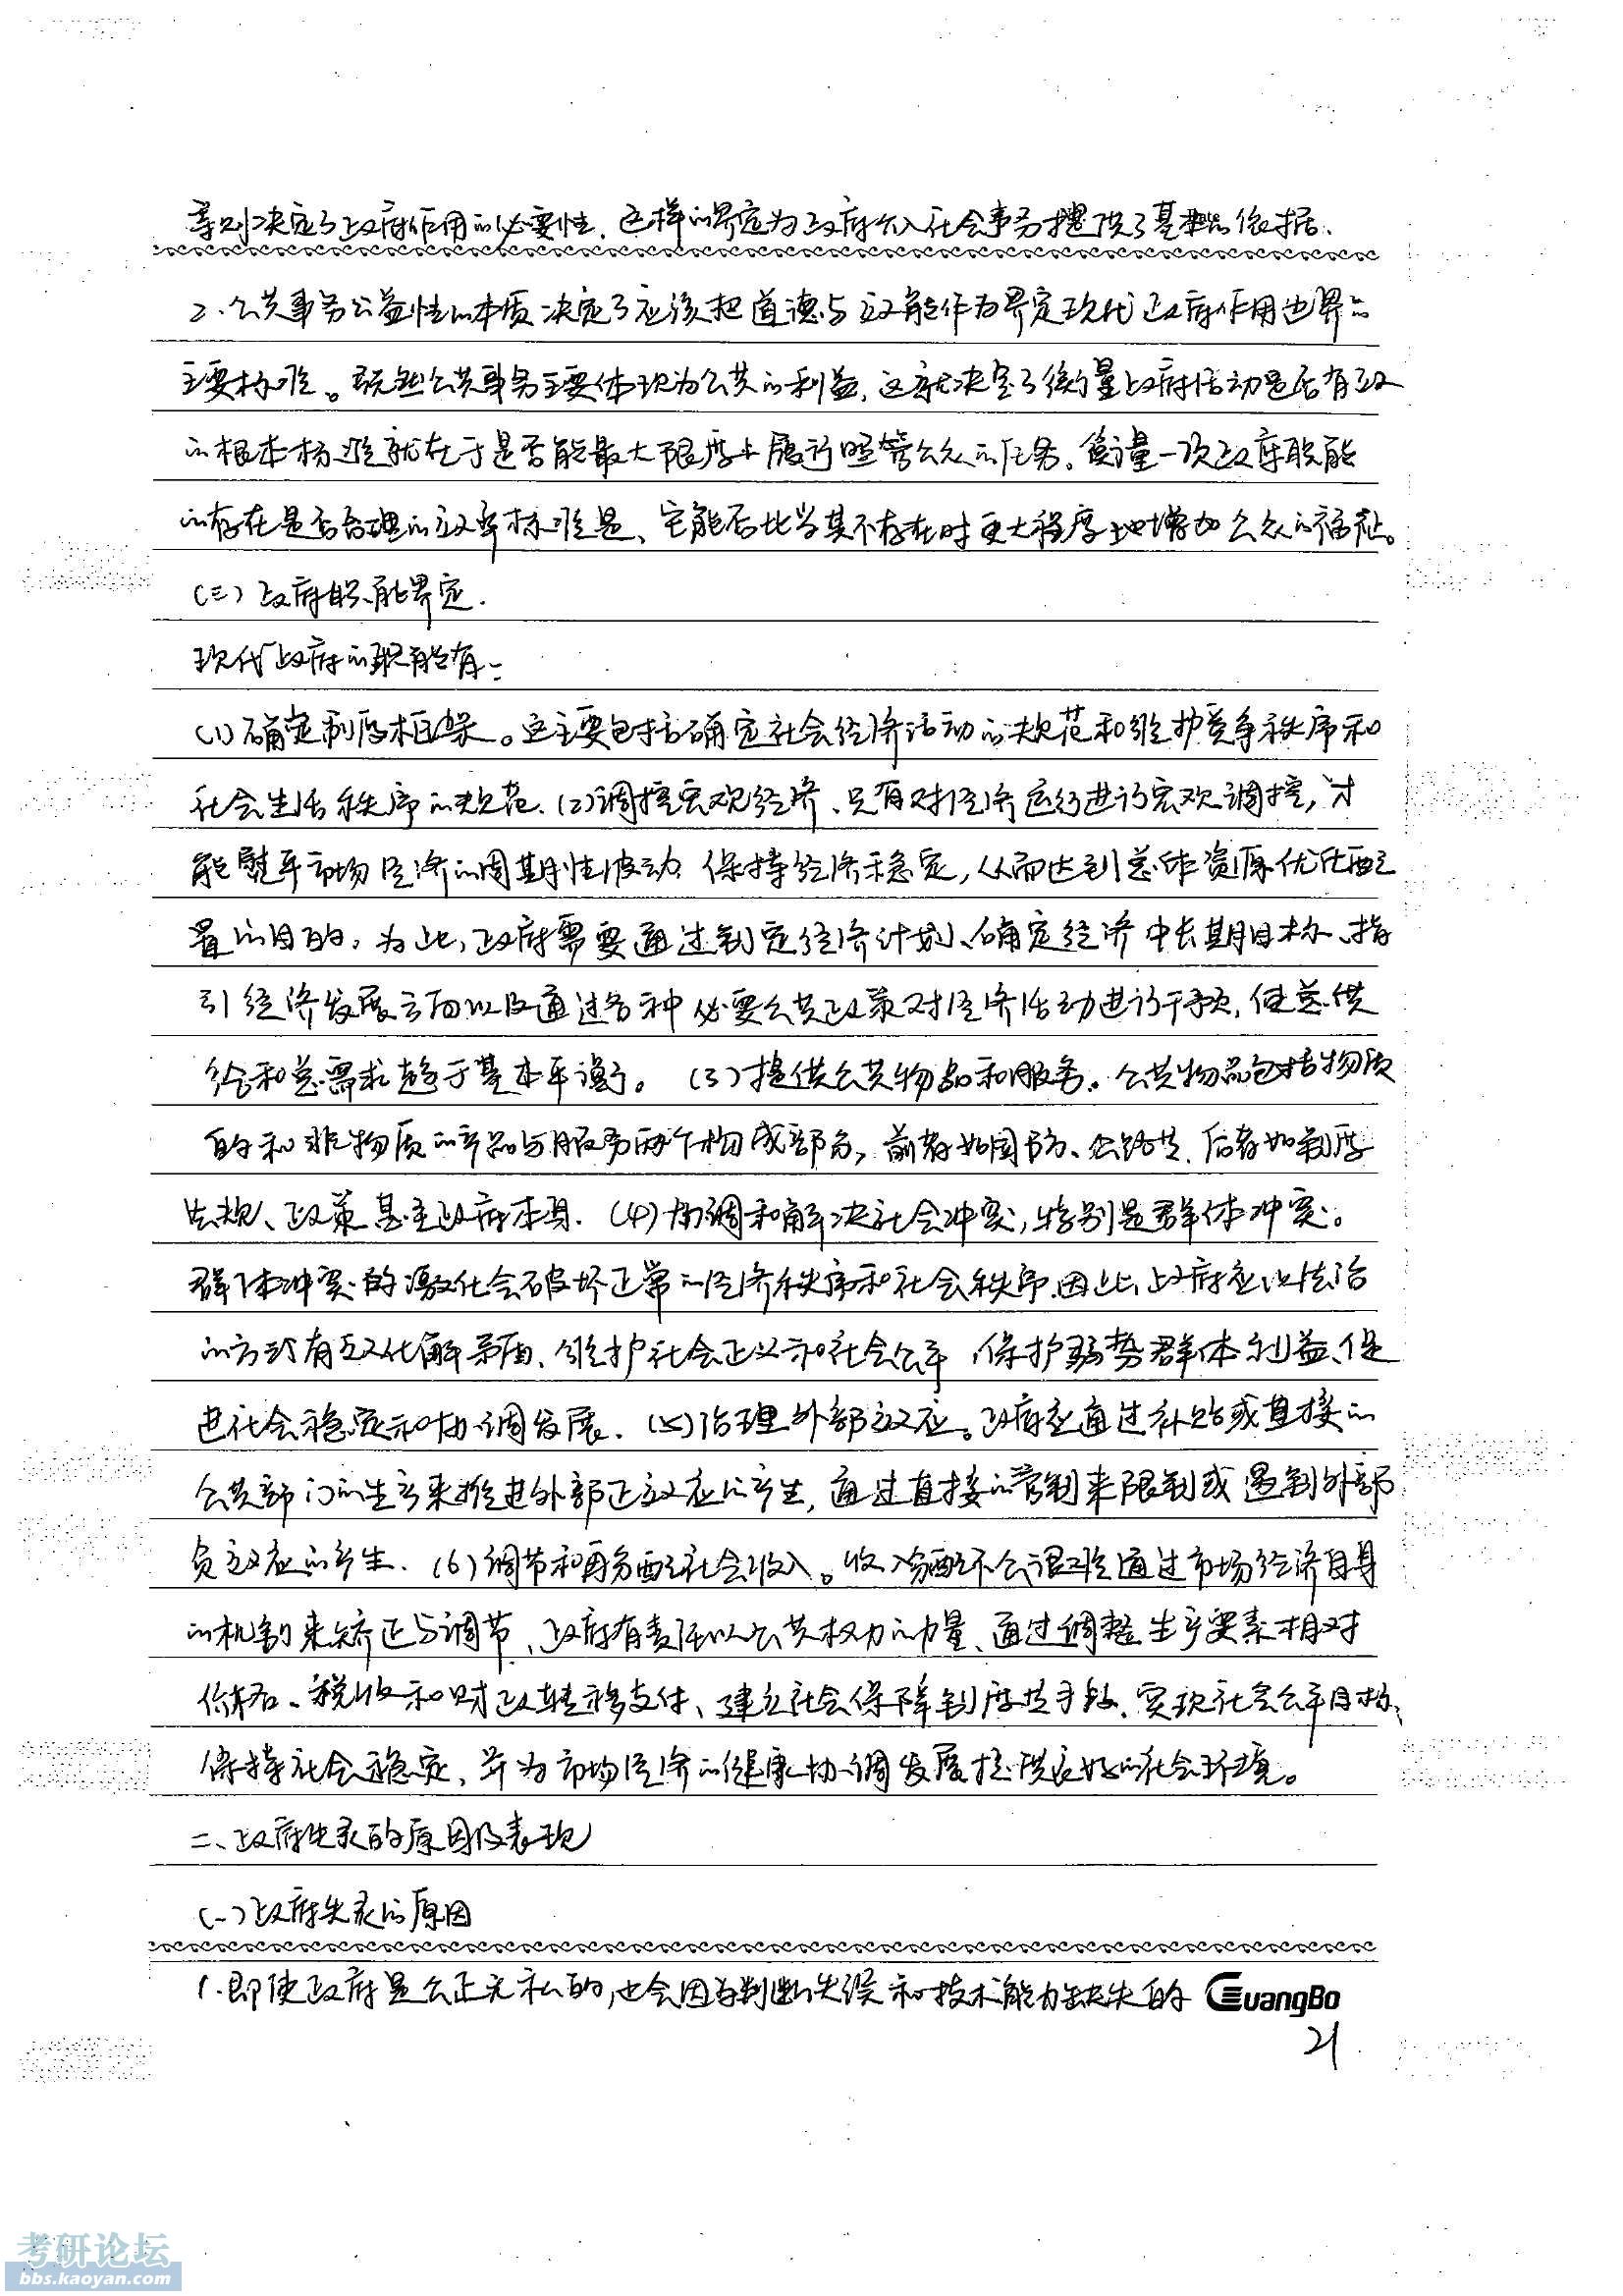 原则决定了政府作用的必要性。这样的界定为政府介入社会事务提供了基本的依据。
2.公共事务公益性的本质决定了应该把道德与效能作为界定现代政府作用边界的
主要标准。既然公共事务主要体现为公共的利益,这就决定了衡量政府活动是否有效
的根本标准就在于是否能最大限度上履行照管公众的任务。衡量一项政府职能
的存在是否合理的效率标准是、它能否比当其不存在时更大程度地增加公众的福祉。
(三)政府职能界定.
现代政府的职能有:
(1)确定制度框架。这主要包括确定社会经济活动的规范和维护竞争秩序和
社会生活秩序的规范.(2)调控宏观经济、只有对经济运行进行宏观调控,才
能熨平市场经济的周期性波动、保持经济稳定,从而达到总体资源优化配
置的目的。为此,政府需要通过制定经济计划、确定经济中长期目标、指
引经济发展方向以及通过各种必要公共政策对经济活动进行干预,使总供
给和总需求趋于基本平衡。(3)提供公共物品和服务。公共物品包括物质
的和非物质的产品与服务两个构成部分,前者如国防、公路共、后者如制度
法规、政策甚至政府本身.(4)协调和解决社会冲突,特别是群体冲突。
群体冲突的激化会破坏正常的经济秩序和社会秩序.因此,政府应以法治
的方式有效化解矛盾、维护社会正义和社会公平,保护弱势群体利益、促
进社会稳定和协调发展.(5)治理外部效应。政府应通过补贴或直接的
公共部门的生产来推进外部正效应的产生,通过直接的管制来限制或遏制外部
负效应的产生.(6)调节和再分配社会收入。收入分配不公很难通过市场经济自身
的机制来矫正与调节、政府有责任以公共权力的力量、通过调整生产要素相对
价格、税收和财政转移支付、建立社会保障制度共手段.实现社会公平目标、
保持社会稳定、并为市场经济的健康协调发展提供良好的社会环境。
二、政府失灵的原因及表现
(一)政府失灵的原因
1.即使政府是公正无私的,也会因为判断失误和技术能力缺失的 GuangBo
21
考研论坛
bbs.kaoyan.com